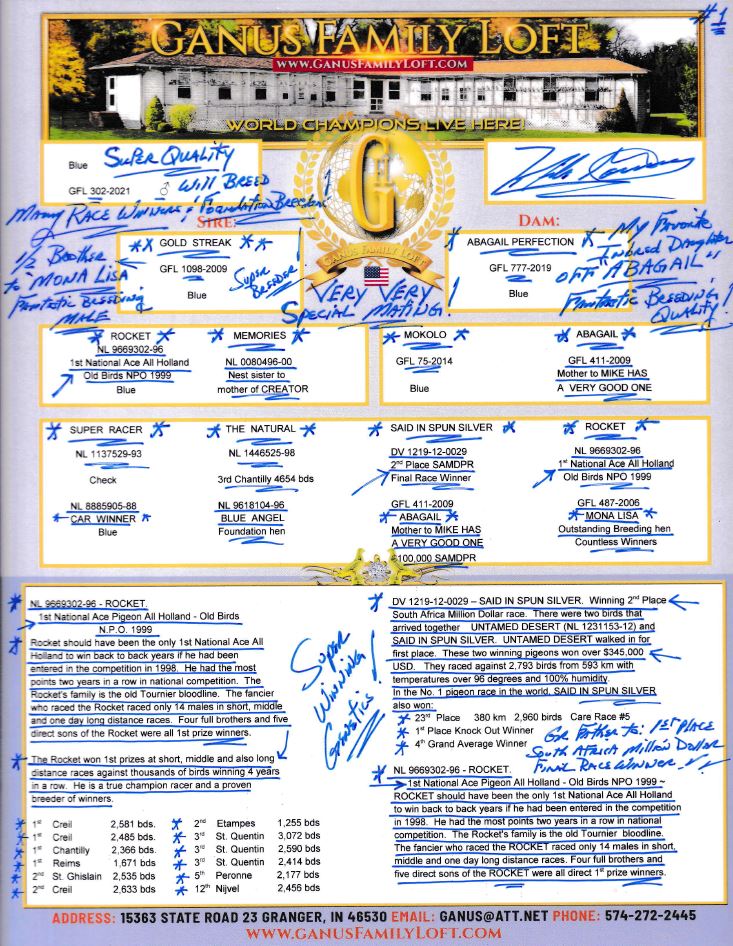 #1
GANUS FAMILY LOFT
WWW.GANUSFAMILYLOFT.COM
WORLD CHAMPIONS LIVE HERE!
Blue SUPER QUALITY
GFL 302-2021 ♂ WILL BREED
MANY RACE WINNERS & FOUNDATION BREEDERS!
G
GANUS FAMILY LOFT
SIRE:
** GOLD STREAK **
GFL 1098-2009
Blue
SUPER BREEDER!
1/2 BROTHER
to "MONA LISA
FANTASTIC BREEDING
MALE
DAM:
* ABAGAIL PERFECTION *
GFL 777-2019
Blue
My FAVORITE
INBRED DAUGHTER
OFF "ABAGAIL"
FANTASTIC BREEDING
QUALITY!
VERY VERY
SPECIAL MATING!
* ROCKET *
NL 9669302-96
1st National Ace All Holland
Old Birds NPO 1999
Blue
* MEMORIES *
NL 0080496-00
Nest sister to
mother of CREATOR
* MOKOLO *
GFL 75-2014
Blue
* ABAGAIL *
GFL 411-2009
Mother to MIKE HAS
A VERY GOOD ONE
* SUPER RACER *
NL 1137529-93
Check
NL 8885905-88
* CAR WINNER *
Blue
* THE NATURAL *
NL 1446525-98
3rd Chantilly 4654 bds
NL 9618104-96
BLUE ANGEL
Foundation hen
* SAID IN SPUN SILVER *
DV 1219-12-0029
2nd Place SAMDPR
Final Race Winner
GFL 411-2009
* ABAGAIL *
Mother to MIKE HAS
A VERY GOOD ONE
$100,000 SAMDPR
* ROCKET *
NL 9669302-96
1st National Ace All Holland
Old Birds NPO 1999
GFL 487-2006
* MONA LISA *
Outstanding Breeding hen
Countless Winners
* NL 9669302-96 - ROCKET.
1st National Ace Pigeon All Holland - Old Birds
N.P.O. 1999
* Rocket should have been the only 1st National Ace All
Holland to win back to back years if he had been
entered in the competition in 1998. He had the most
points two years in a row in national competition. The
Rocket's family is the old Tournier bloodline. The fancier
who raced the Rocket raced only 14 males in short, middle
and one day long distance races. Four full brothers and five
direct sons of the Rocket were all 1st prize winners.
* The Rocket won 1st prizes at short, middle and also long
distance races against thousands of birds winning 4 years
in a row. He is a true champion racer and a proven
breeder of winners.
* 1st Creil 2,581 bds. * 2nd Etampes 1,255 bds
* 1st Creil 2,485 bds. * 3rd St. Quentin 3,072 bds
* 1st Chantilly 2,366 bds. * 3rd St. Quentin 2,590 bds
* 1st Reims 1,671 bds * 3rd St. Quentin 2,414 bds
* 2nd St. Ghislain 2,535 bds * 5th Peronne 2,177 bds
* 2nd Creil 2,633 bds * 12th Nijvel 2,456 bds
SUPER
WINNING
GENETICS!
* DV 1219-12-0029 – SAID IN SPUN SILVER. Winning 2nd Place
South Africa Million Dollar race. There were two birds that
arrived together UNTAMED DESERT (NL 1231153-12) and
SAID IN SPUN SILVER. UNTAMED DESERT walked in for
first place. These two winning pigeons won over $345,000
USD. They raced against 2,793 birds from 593 km with
temperatures over 96 degrees and 100% humidity.
In the No. 1 pigeon race in the world. SAID IN SPUN SILVER
also won:
* 23rd Place 380 km 2,960 birds Care Race #5
* 1st Place Knock Out Winner
* 4th Grand Average Winner
GR FATHER to: 1ST PLACE
SOUTH AFRICA MILLION DOLLAR
FINAL RACE WINNER!
* NL 9669302-96 - ROCKET.
1st National Ace Pigeon All Holland - Old Birds NPO 1999 ~
ROCKET should have been the only 1st National Ace All Holland
to win back to back years if he had been entered in the competition
in 1998. He had the most points two years in a row in national
competition. The Rocket's family is the old Tournier bloodline.
The fancier who raced the ROCKET raced only 14 males in short,
middle and one day long distance races. Four full brothers and
five direct sons of the ROCKET were all direct 1st prize winners.
ADDRESS: 15363 STATE ROAD 23 GRANGER, IN 46530 EMAIL: GANUS@ATT.NET PHONE: 574-272-2445
WWW.GANUSFAMILYLOFT.COM